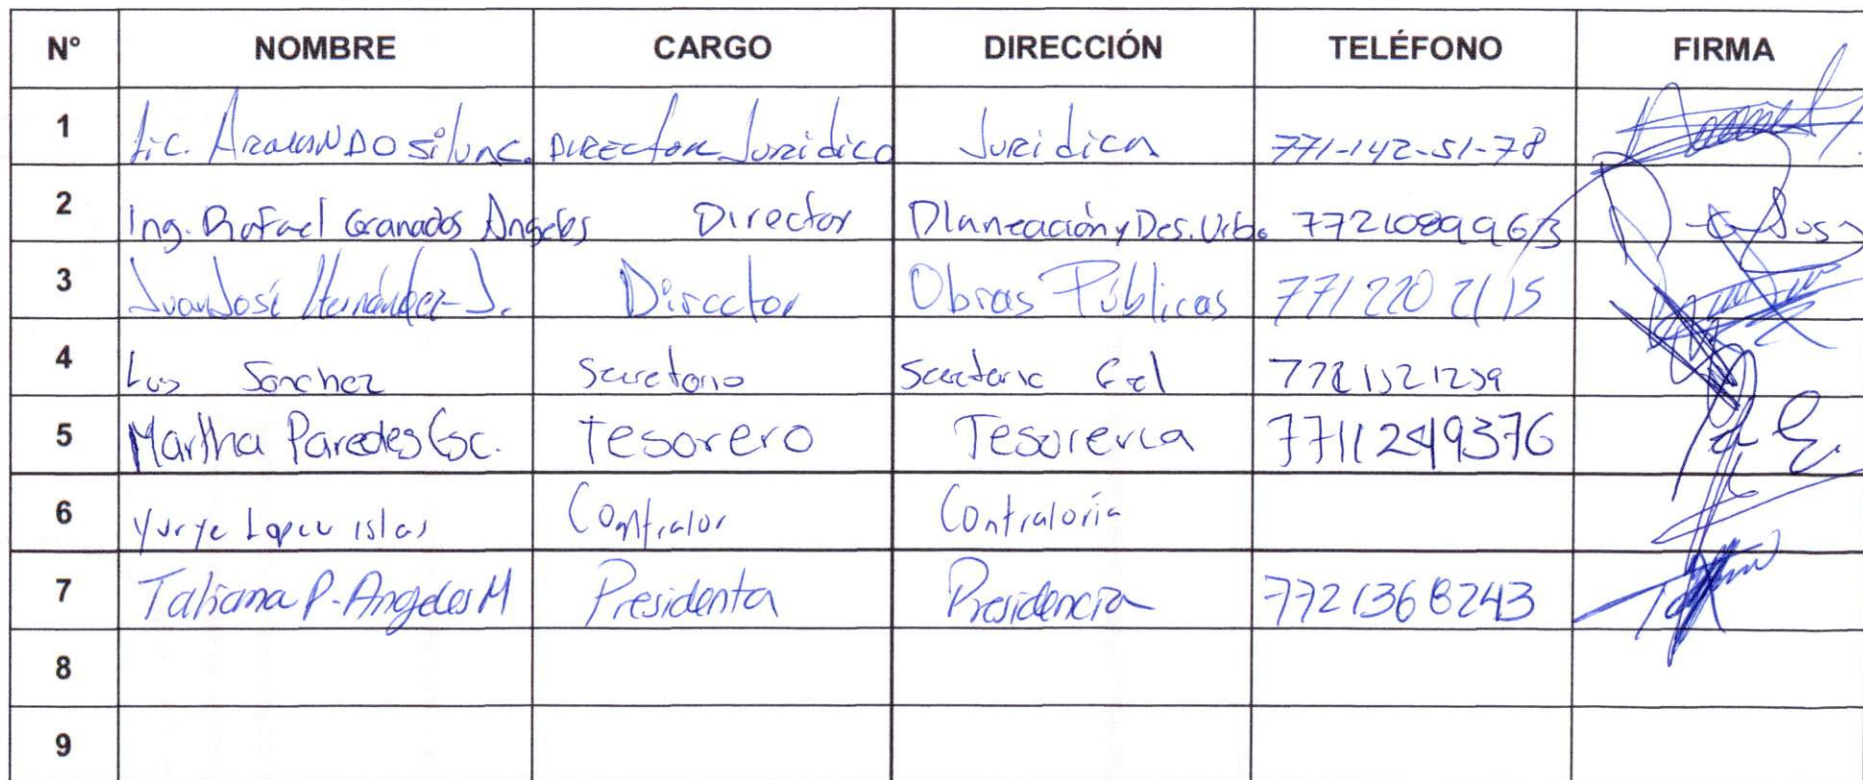 N° NOMBRE CARGO DIRECCIÓN TELÉFONO FIRMA
1 Lic. ARMANDO Silva C. DIRECTOR Juridico Juridica 771-142-51-78
2 Ing. Rafael Granados Ángeles Director Planeación y Des. Urb. 7721089963
3 Juan José Hernández J. Director Obras Públicas 771 220 2115
4 Luis Sanchez Secretario Secretaria Gral
5 Martha Paredes Esc. Tesorero Tesoreria 7711249376
6 Yurye Lopez islas Contralor Contraloría
7 Tatiana P. Angeles M Presidenta Presidencia 7721368243
8
9